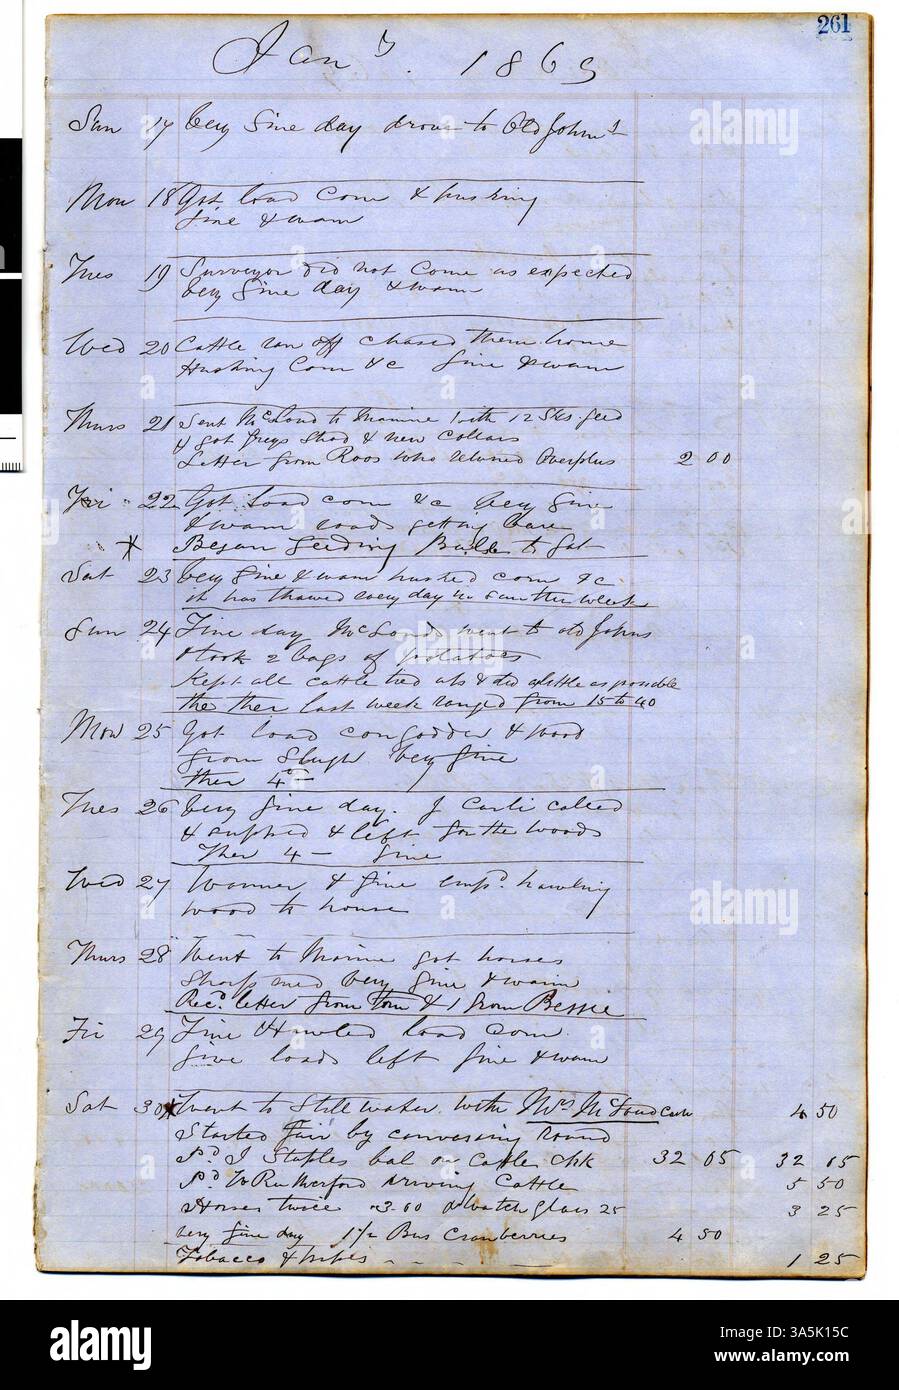 261
Jany. 1869
Sun 17 Very fine day drove to Old Johns
Mon 18 Got load corn & husking
fine & warm
Tues 19 Surveyor did not come as expected
very fine day & warm
Wed 20 Cattle ran off chased them home
Husking Corn &c fine & warm
Thurs 21 Sent McLoud to Marine with 12 Sks feed
& got Greys Shod & new Collars
Letter from Roos who returned Overplus 2 00
Fri 22 Got load corn &c very fine
& warm roads getting bare
* Began feeding Bulls to fat
Sat 23 Very fine & warm husked corn &c
it has thawed every day in Sun this week
Sun 24 Fine day McLouds went to old Johns
& took 2 bags of potatoes
Kept all cattle tied up & did as little as possible
the ther last week ranged from 15 to 40
Mon 25 Got load & wood
from Slugh very fine
Ther 40 -
Tues 26 Very fine day. J called
& & left for the woods
Ther 4 - fine
Wed 27 Warmer & fine empd. hawling
wood to house
Thurs 28 Went to Marine got horses
very fine & warm
Recd. letter from Tom & 1 from Bessie
Fri 29 Fine & Hawled load corn
five loads left fine & warm
Sat 30 * Went to Stillwater with Mrs McLoud Cash 4 50
Started Fair by conversing round
Pd J Staples bal on Cattle chk 32 05 32 05
Pd W Rutherford driving Cattle 5 50
Horses twice 3.00 & Watch glass 25 3 25
very fine day 1 1/2 Bus Cranberries 4 50
Tobacco & pipes - - - - 1 25
alamy
Image ID: 3A5K15C
www.alamy.com